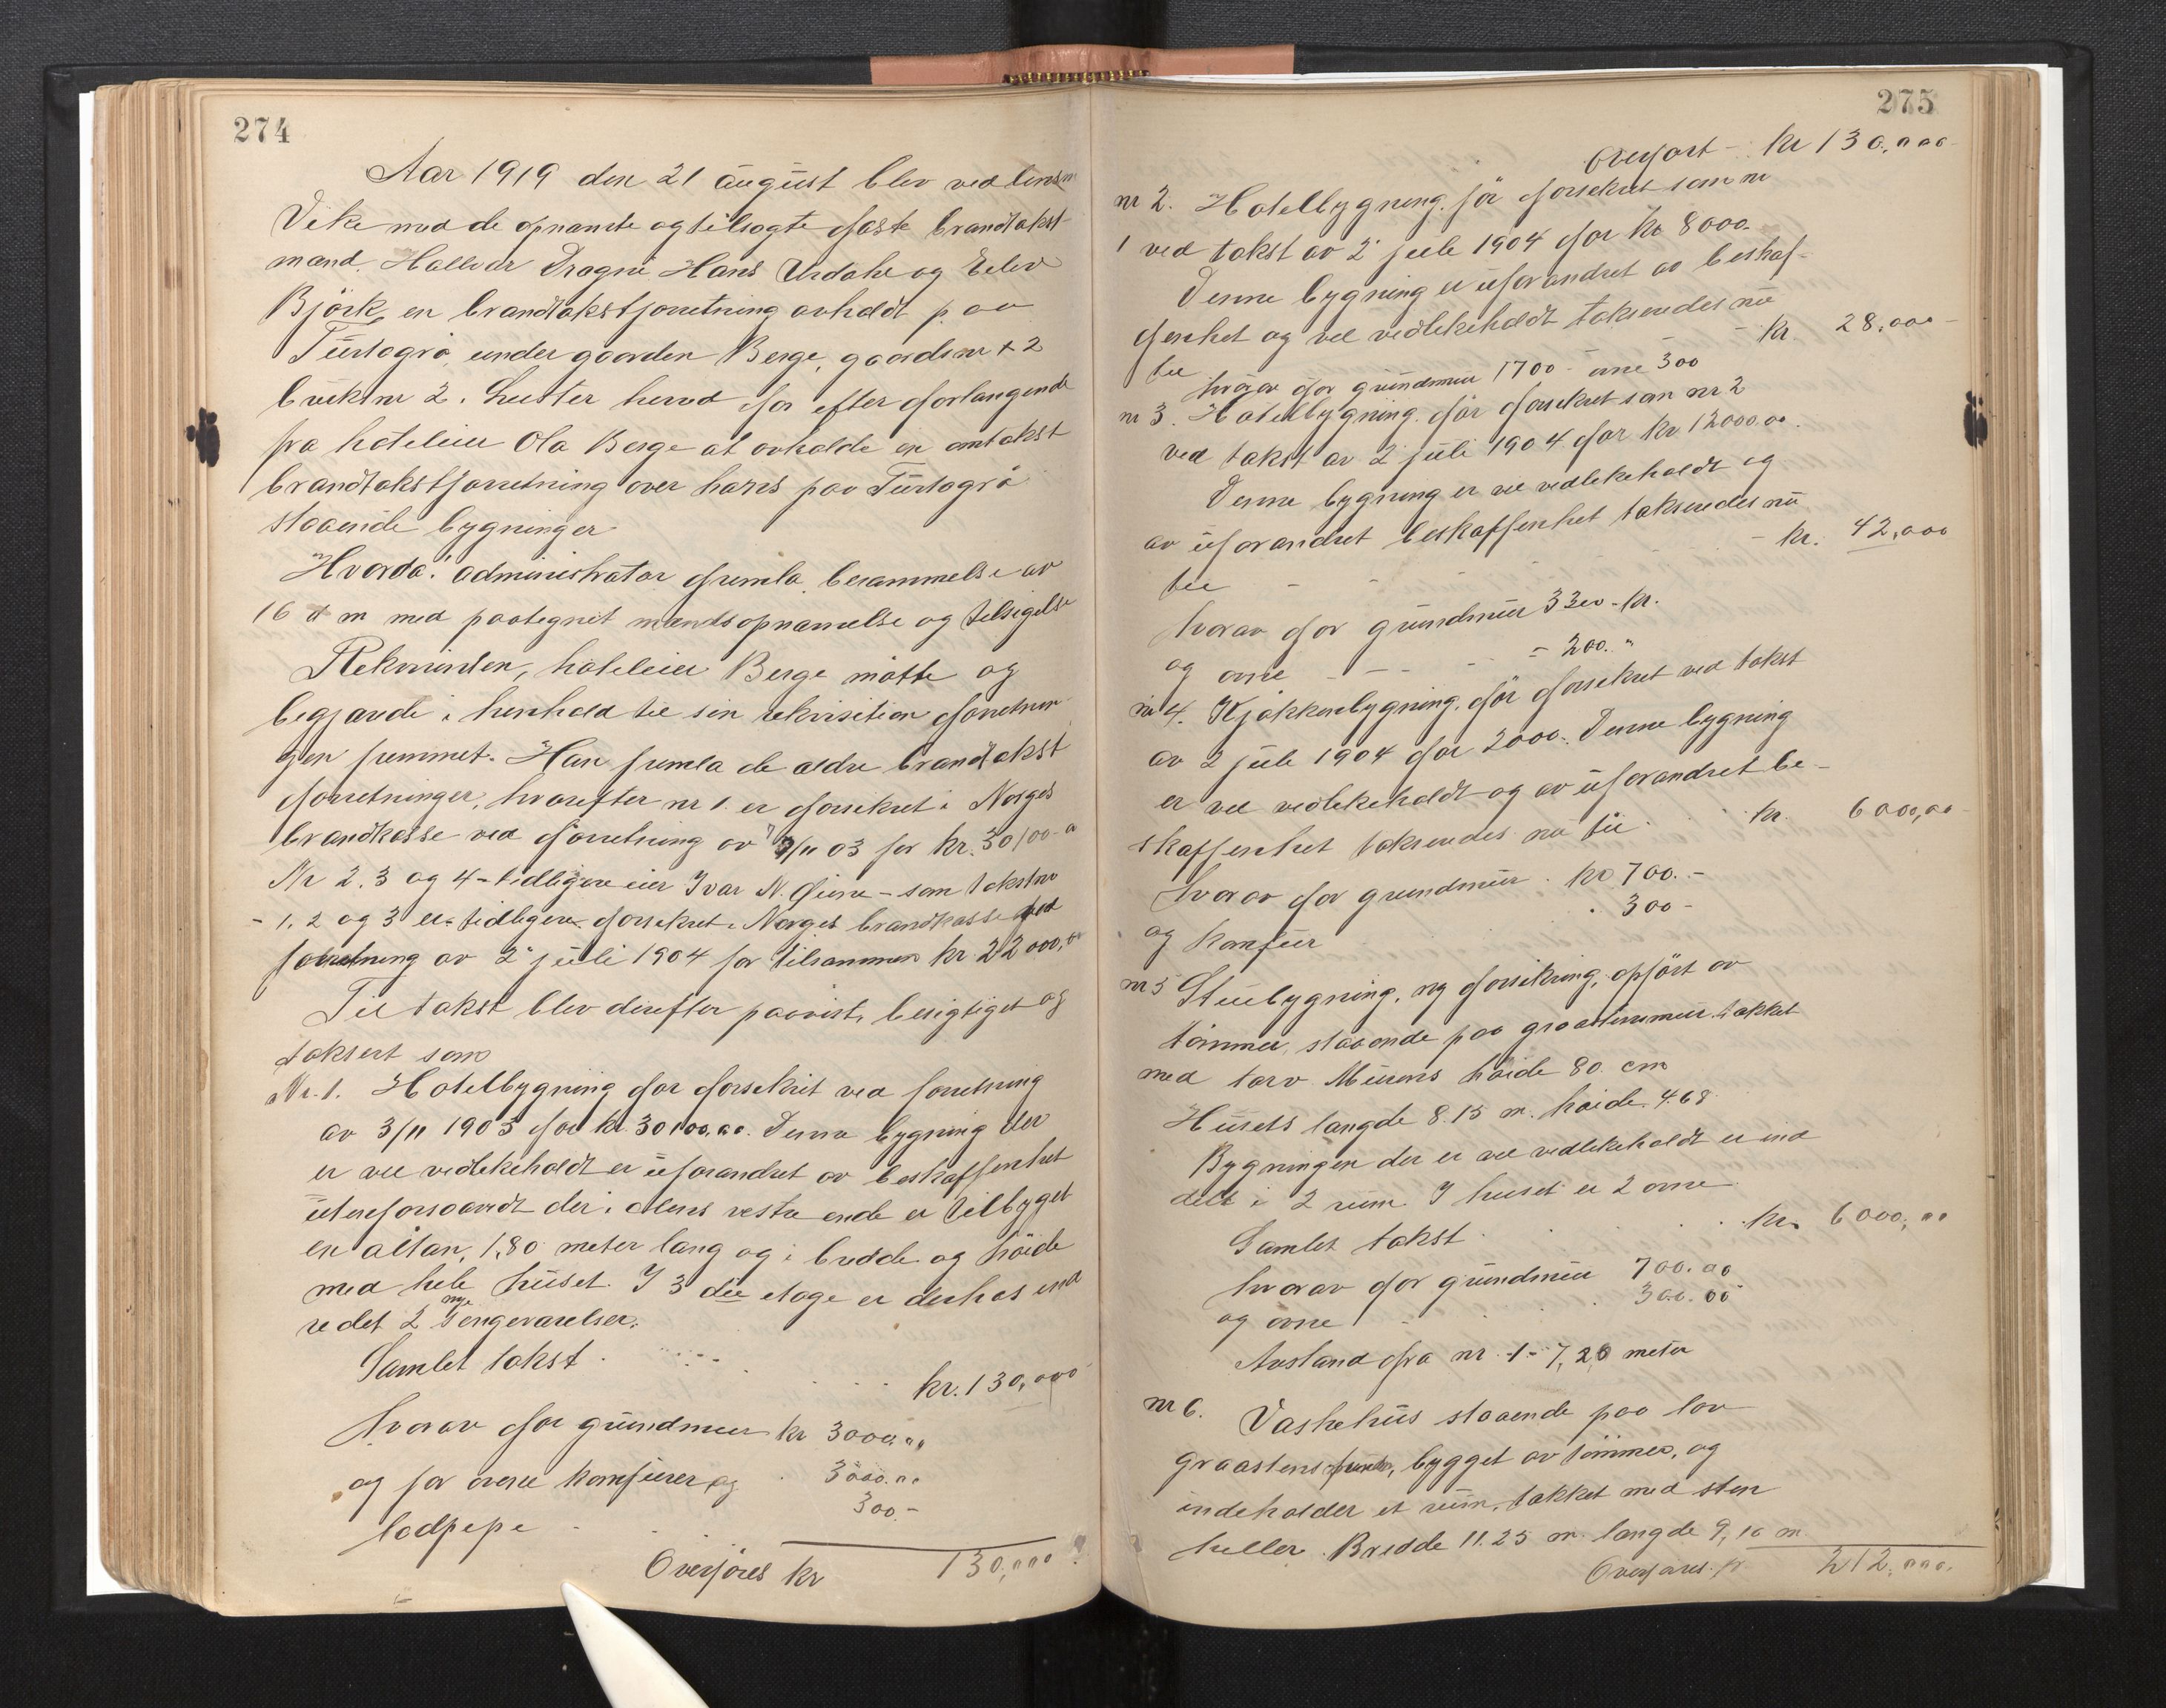 274
Aar 1919 den 21 august blev ved lensm
Vike med de opnævnte og tilsagte faste brandtakst-
mænd. Hallvar Dragni Hans Urdahl og Eilev
Björk en brandtakstforretning avholdt paa
Turtagrö, under gaarden Berge, gaardsnr 2
bruksnr 2. Luster herred for efter forlangende
fra hoteleier Ola Berge at avholde en omtakst
brandtakstforretning over hans paa Turtagrö
staaende bygninger
Hvorda! administrator fremla berammelse av
16 d m med paategnet mændsopnævnelse og tilsigelse
Rekvirenten, hoteleier Berge mötte og
begjærde i henhold til sin rekvisition forretnin-
gen fremmet. Han fremla de ældre brandtakst
forretninger, hvorefter nr 1 er forsikret i Norges
brandkasse ved forretning av 3/11 03 for kr. 30100.
Nr 2. 3 og 4 - tidligere eier Ivar N. Öiene - som takstnr
- 1, 2 og 3 er tidligere forsikret i Norges brandkasse ved
forretning av 2 juli 1904 for tilsammen kr 22000,00
Til takst blev derefter paavist, besigtiget og
taksert som
Nr. 1. Hotelbygning för forsikret ved forretning
av 3/11 1903 for kr. 30100.00. Denne bygning der
er vel vedlikeholdt er uforandret av beskaffenhet
utenforsaavidt der i dens vestre ende er tilbyget
en altan, 1,80 meter lang og i bredde og höide
med hele huset. I 3 die etage er derhos ind
redet 2 nye sengeværelser.
Samlet takst . kr. 130,000
Hvorav for grundmur kr 3000.00
og for ovne komfurer og 3000.00
lodpipe 300.-
Overföres kr 130,000
275
Overfört - kr 130,000
nr 2. Hotelbygning, för forsikret som nr
1 ved takst av 2 juli 1904 for kr 8000.
Denne bygning er uforandret av beskaf-
fenhet og vel vedlikeholdt takseredes nu
til - kr. 28,000
hvorav for grundmur 1700 - ovne 300
nr 3. Hotelbygning för forsikret som nr 2
ved takst av 2 juli 1904 for kr 12000.00.
Denne bygning er vel vedlikeholdt og
av uforandret beskaffenhet takseredes nu
til - kr. 42,000
hvorav for grundmur 3300 - kr.
og ovne - 200. "
nr 4. Kjökkenbygning, för forsikret ved takst
av 2 juli 1904 for 2000. Denne bygning
er vel vedlikeholdt og av uforandret be-
skaffenhet takseredes nu til kr. 6000,00
hvorav for grundmur kr 700.-
og komfur 300-
nr 5 Stuebygning, ny forsikring, opfört av
tömmer, staaende paa graastensmur takket
med torv. Murens höide 80 cm
Husets længde 8.15 m. höide. 4.68
Bygningen der er vel vedlikeholdt er ind
delt i 2 rum. I huset er 2 ovne
Samlet takst kr. 6000,00
hvorav for grundmur 700.00
og ovne 300.00
Avstand fra nr 1 - 7,20 meter
nr 6. Vaskehus staaende paa lav
graastens, bygget av tömmer, og
indeholder et rum, takket med sten
heller. Bredde 11.25 m. længde 9,10 m.
Overföres kr 212,000.